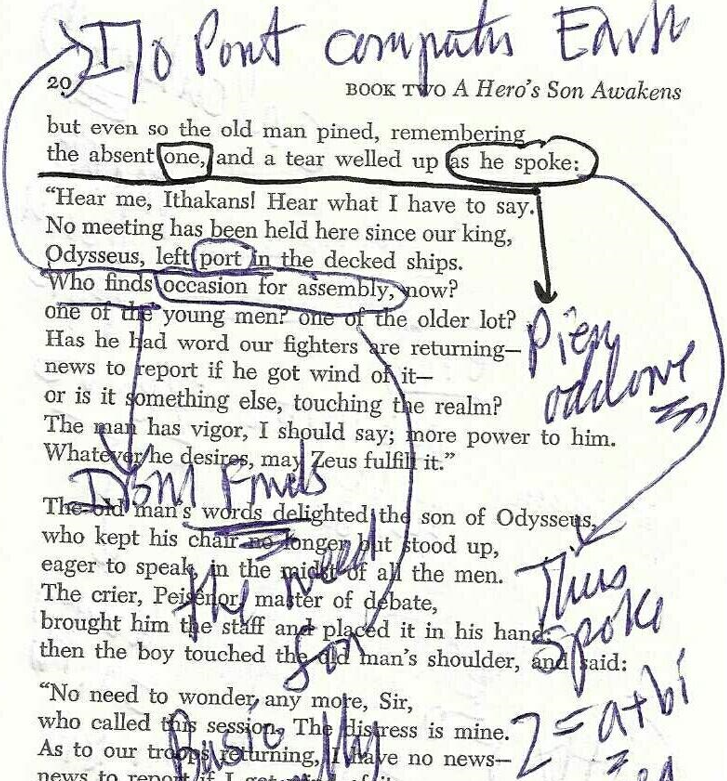 I/O Port computer Earth
20
BOOK TWO A Hero's Son Awakens
but even so the old man pined, remembering
the absent one, and a tear welled up as he spoke:
"Hear me, Ithakans! Hear what I have to say.
No meeting has been held here since our king,
Odysseus, left port in the decked ships.
Who finds occasion for assembly, now?
one of the young men? one of the older lot?
Has he had word our fighters are returning—
news to report if he got wind of it—
or is it something else, touching the realm?
The man has vigor, I should say; more power to him.
Whatever he desires, may Zeus fulfill it."
IBM Finds
The old man's words delighted the son of Odysseus,
who kept his chair no longer but stood up,
eager to speak, in the midst of all the men.
The crier, Peisênor, master of debate,
brought him the staff and placed it in his hand;
then the boy touched the old man's shoulder, and said:
the need
for
Thus
Spoke
Z=a+bi
"No need to wonder any more, Sir,
who called this session. The distress is mine.
As to our troops returning, I have no news—
news to report if I got wind of it—